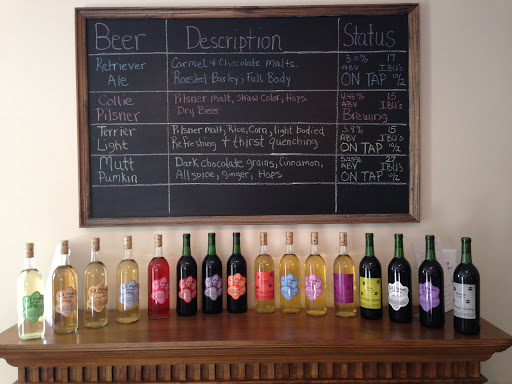 Beer Description Status
Retriever Carmel & Chocolate malts. 3.0% 17
Ale Roasted Barley, Full Body ABV IBU's
ON TAP 10/2
Collie Pilsner malt, straw color, Hops 4.46% 15
Pilsner Dry Beer ABV IBU's
Brewing
Terrier Pilsner malt, Rice, Corn, light bodied 3.9% 15
Light Refreshing & thirst quenching ABV IBU's
ON TAP 10/2
Mutt Dark chocolate grains, Cinnamon, 5.25% 27
Pumkin Allspice, ginger, Hops ABV IBU's
ON TAP 10/2